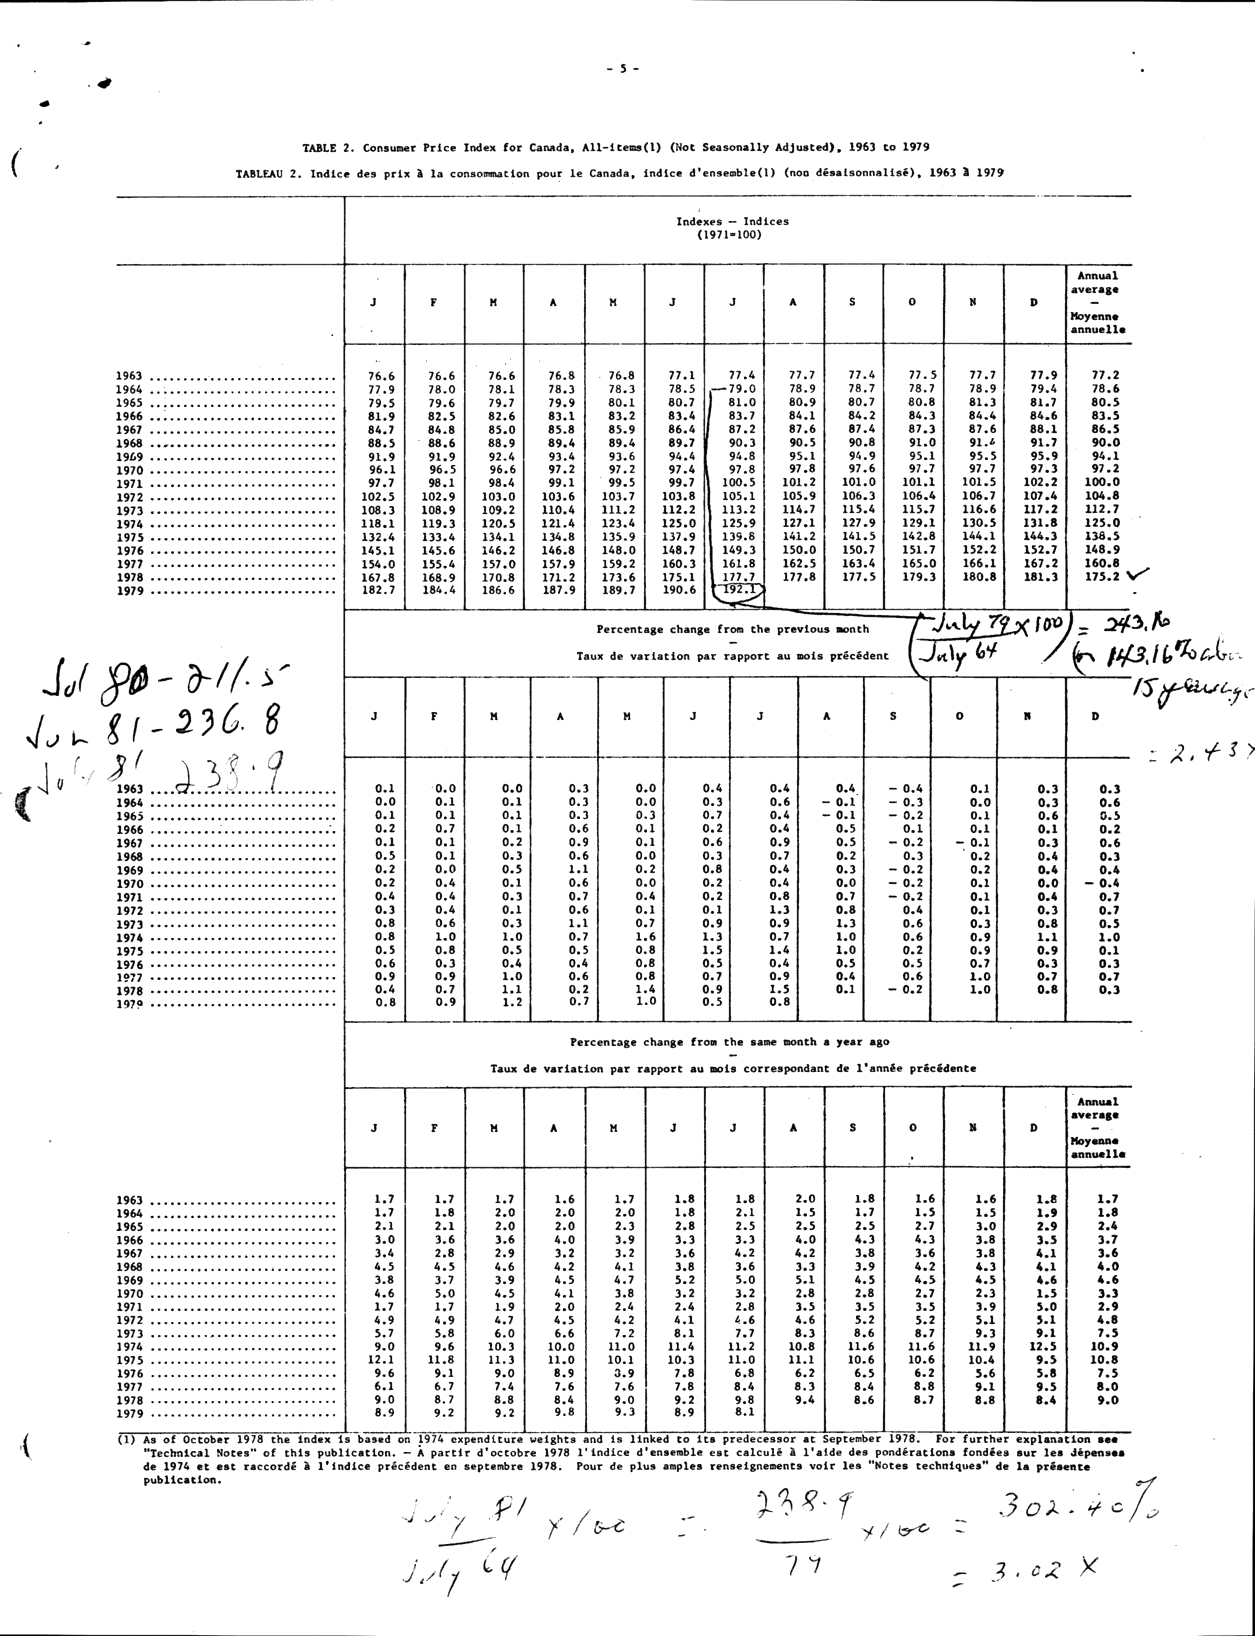 - 5 -
TABLE 2. Consumer Price Index for Canada, All-items(1) (Not Seasonally Adjusted), 1963 to 1979
TABLEAU 2. Indice des prix à la consommation pour le Canada, indice d'ensemble(1) (non désaisonnalisé), 1963 à 1979
Indexes — Indices
(1971=100)
Annual
average
—
Moyenne
annuelle
J F M A M J J A S O N D
1963 76.6 76.6 76.6 76.8 76.8 77.1 77.4 77.7 77.4 77.5 77.7 77.9 77.2
1964 77.9 78.0 78.1 78.3 78.3 78.5 79.0 78.9 78.7 78.7 78.9 79.4 78.6
1965 79.5 79.6 79.7 79.9 80.1 80.7 81.0 80.9 80.7 80.8 81.3 81.7 80.5
1966 81.9 82.5 82.6 83.1 83.2 83.4 83.7 84.1 84.2 84.3 84.4 84.6 83.5
1967 84.7 84.8 85.0 85.8 85.9 86.4 87.2 87.6 87.4 87.3 87.6 88.1 86.5
1968 88.5 88.6 88.9 89.4 89.4 89.7 90.3 90.5 90.8 91.0 91.4 91.7 90.0
1969 91.9 91.9 92.4 93.4 93.6 94.4 94.8 95.1 94.9 95.1 95.5 95.9 94.1
1970 96.1 96.5 96.6 97.2 97.2 97.4 97.8 97.8 97.6 97.7 97.7 97.3 97.2
1971 97.7 98.1 98.4 99.1 99.5 99.7 100.5 101.2 101.0 101.1 101.5 102.2 100.0
1972 102.5 102.9 103.0 103.6 103.7 103.8 105.1 105.9 106.3 106.4 106.7 107.4 104.8
1973 108.3 108.9 109.2 110.4 111.2 112.2 113.2 114.7 115.4 115.7 116.6 117.2 112.7
1974 118.1 119.3 120.5 121.4 123.4 125.0 125.9 127.1 127.9 129.1 130.5 131.8 125.0
1975 132.4 133.4 134.1 134.8 135.9 137.9 139.8 141.2 141.5 142.8 144.1 144.3 138.5
1976 145.1 145.6 146.2 146.8 148.0 148.7 149.3 150.0 150.7 151.7 152.2 152.7 148.9
1977 154.0 155.4 157.0 157.9 159.2 160.3 161.8 162.5 163.4 165.0 166.1 167.2 160.8
1978 167.8 168.9 170.8 171.2 173.6 175.1 177.7 177.8 177.5 179.3 180.8 181.3 175.2 ✓
1979 182.7 184.4 186.6 187.9 189.7 190.6 192.1
Percentage change from the previous month
—
Taux de variation par rapport au mois précédent
(July 79 x 100) = 243.16
July 64
or 143.16%
15 years ago
= 2.43 X
Jul 80 - 211.5
Jun 81 - 236.8
July 81 238.9
J F M A M J J A S O N D
1963 0.1 0.0 0.0 0.3 0.0 0.4 0.4 0.4 - 0.4 0.1 0.3 0.3
1964 0.0 0.1 0.1 0.3 0.0 0.3 0.6 - 0.1 - 0.3 0.0 0.3 0.6
1965 0.1 0.1 0.1 0.3 0.3 0.7 0.4 - 0.1 - 0.2 0.1 0.6 0.5
1966 0.2 0.7 0.1 0.6 0.1 0.2 0.4 0.5 0.1 0.1 0.1 0.2
1967 0.1 0.1 0.2 0.9 0.1 0.6 0.9 0.5 - 0.2 - 0.1 0.3 0.6
1968 0.5 0.1 0.3 0.6 0.0 0.3 0.7 0.2 0.3 0.2 0.4 0.3
1969 0.2 0.0 0.5 1.1 0.2 0.8 0.4 0.3 - 0.2 0.2 0.4 0.4
1970 0.2 0.4 0.1 0.6 0.0 0.2 0.4 0.0 - 0.2 0.1 0.0 - 0.4
1971 0.4 0.4 0.3 0.7 0.4 0.2 0.8 0.7 - 0.2 0.1 0.4 0.7
1972 0.3 0.4 0.1 0.6 0.1 0.1 1.3 0.8 0.4 0.1 0.3 0.7
1973 0.8 0.6 0.3 1.1 0.7 0.9 0.9 1.3 0.6 0.3 0.8 0.5
1974 0.8 1.0 1.0 0.7 1.6 1.3 0.7 1.0 0.6 0.9 1.1 1.0
1975 0.5 0.8 0.5 0.5 0.8 1.5 1.4 1.0 0.2 0.9 0.9 0.1
1976 0.6 0.3 0.4 0.4 0.8 0.5 0.4 0.5 0.5 0.7 0.3 0.3
1977 0.9 0.9 1.0 0.6 0.8 0.7 0.9 0.4 0.6 1.0 0.7 0.7
1978 0.4 0.7 1.1 0.2 1.4 0.9 1.5 0.1 - 0.2 1.0 0.8 0.3
1979 0.8 0.9 1.2 0.7 1.0 0.5 0.8
Percentage change from the same month a year ago
—
Taux de variation par rapport au mois correspondant de l'année précédente
Annual
average
—
Moyenne
annuelle
J F M A M J J A S O N D
1963 1.7 1.7 1.7 1.6 1.7 1.8 1.8 2.0 1.8 1.6 1.6 1.8 1.7
1964 1.7 1.8 2.0 2.0 2.0 1.8 2.1 1.5 1.7 1.5 1.5 1.9 1.8
1965 2.1 2.1 2.0 2.0 2.3 2.8 2.5 2.5 2.5 2.7 3.0 2.9 2.4
1966 3.0 3.6 3.6 4.0 3.9 3.3 3.3 4.0 4.3 4.3 3.8 3.5 3.7
1967 3.4 2.8 2.9 3.2 3.2 3.6 4.2 4.2 3.8 3.6 3.8 4.1 3.6
1968 4.5 4.5 4.6 4.2 4.1 3.8 3.6 3.3 3.9 4.2 4.3 4.1 4.0
1969 3.8 3.7 3.9 4.5 4.7 5.2 5.0 5.1 4.5 4.5 4.5 4.6 4.6
1970 4.6 5.0 4.5 4.1 3.8 3.2 3.2 2.8 2.8 2.7 2.3 1.5 3.3
1971 1.7 1.7 1.9 2.0 2.4 2.4 2.8 3.5 3.5 3.5 3.9 5.0 2.9
1972 4.9 4.9 4.7 4.5 4.2 4.1 4.6 4.6 5.2 5.2 5.1 5.1 4.8
1973 5.7 5.8 6.0 6.6 7.2 8.1 7.7 8.3 8.6 8.7 9.3 9.1 7.5
1974 9.0 9.6 10.3 10.0 11.0 11.4 11.2 10.8 11.6 11.6 11.9 12.5 10.9
1975 12.1 11.8 11.3 11.0 10.1 10.3 11.0 11.1 10.6 10.6 10.4 9.5 10.8
1976 9.6 9.1 9.0 8.9 3.9 7.8 6.8 6.2 6.5 6.2 5.6 5.8 7.5
1977 6.1 6.7 7.4 7.6 7.6 7.8 8.4 8.3 8.4 8.8 9.1 9.5 8.0
1978 9.0 8.7 8.8 8.4 9.0 9.2 9.8 9.4 8.6 8.7 8.8 8.4 9.0
1979 8.9 9.2 9.2 9.8 9.3 8.9 8.1
(1) As of October 1978 the index is based on 1974 expenditure weights and is linked to its predecessor at September 1978. For further explanation see
"Technical Notes" of this publication. — À partir d'octobre 1978 l'indice d'ensemble est calculé à l'aide des pondérations fondées sur les dépenses
de 1974 et est raccordé à l'indice précédent en septembre 1978. Pour de plus amples renseignements voir les "Notes techniques" de la présente
publication.
July 81 x 100 = 238.9 x 100 = 302.40%
July 64 79 = 3.02 X